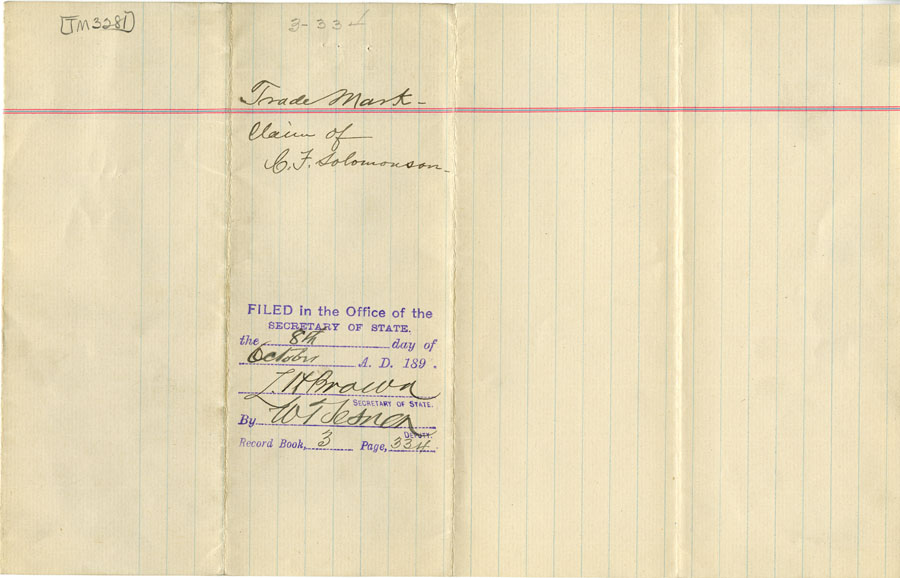 [TM3281]
3-334
Trade Mark-
Claim of
C. F. Solomonson-
FILED in the Office of the
SECRETARY OF STATE.
the 8th day of
October A. D. 189 .
L. H. Brown
SECRETARY OF STATE.
By
DEPUTY.
Record Book, 3 Page, 334